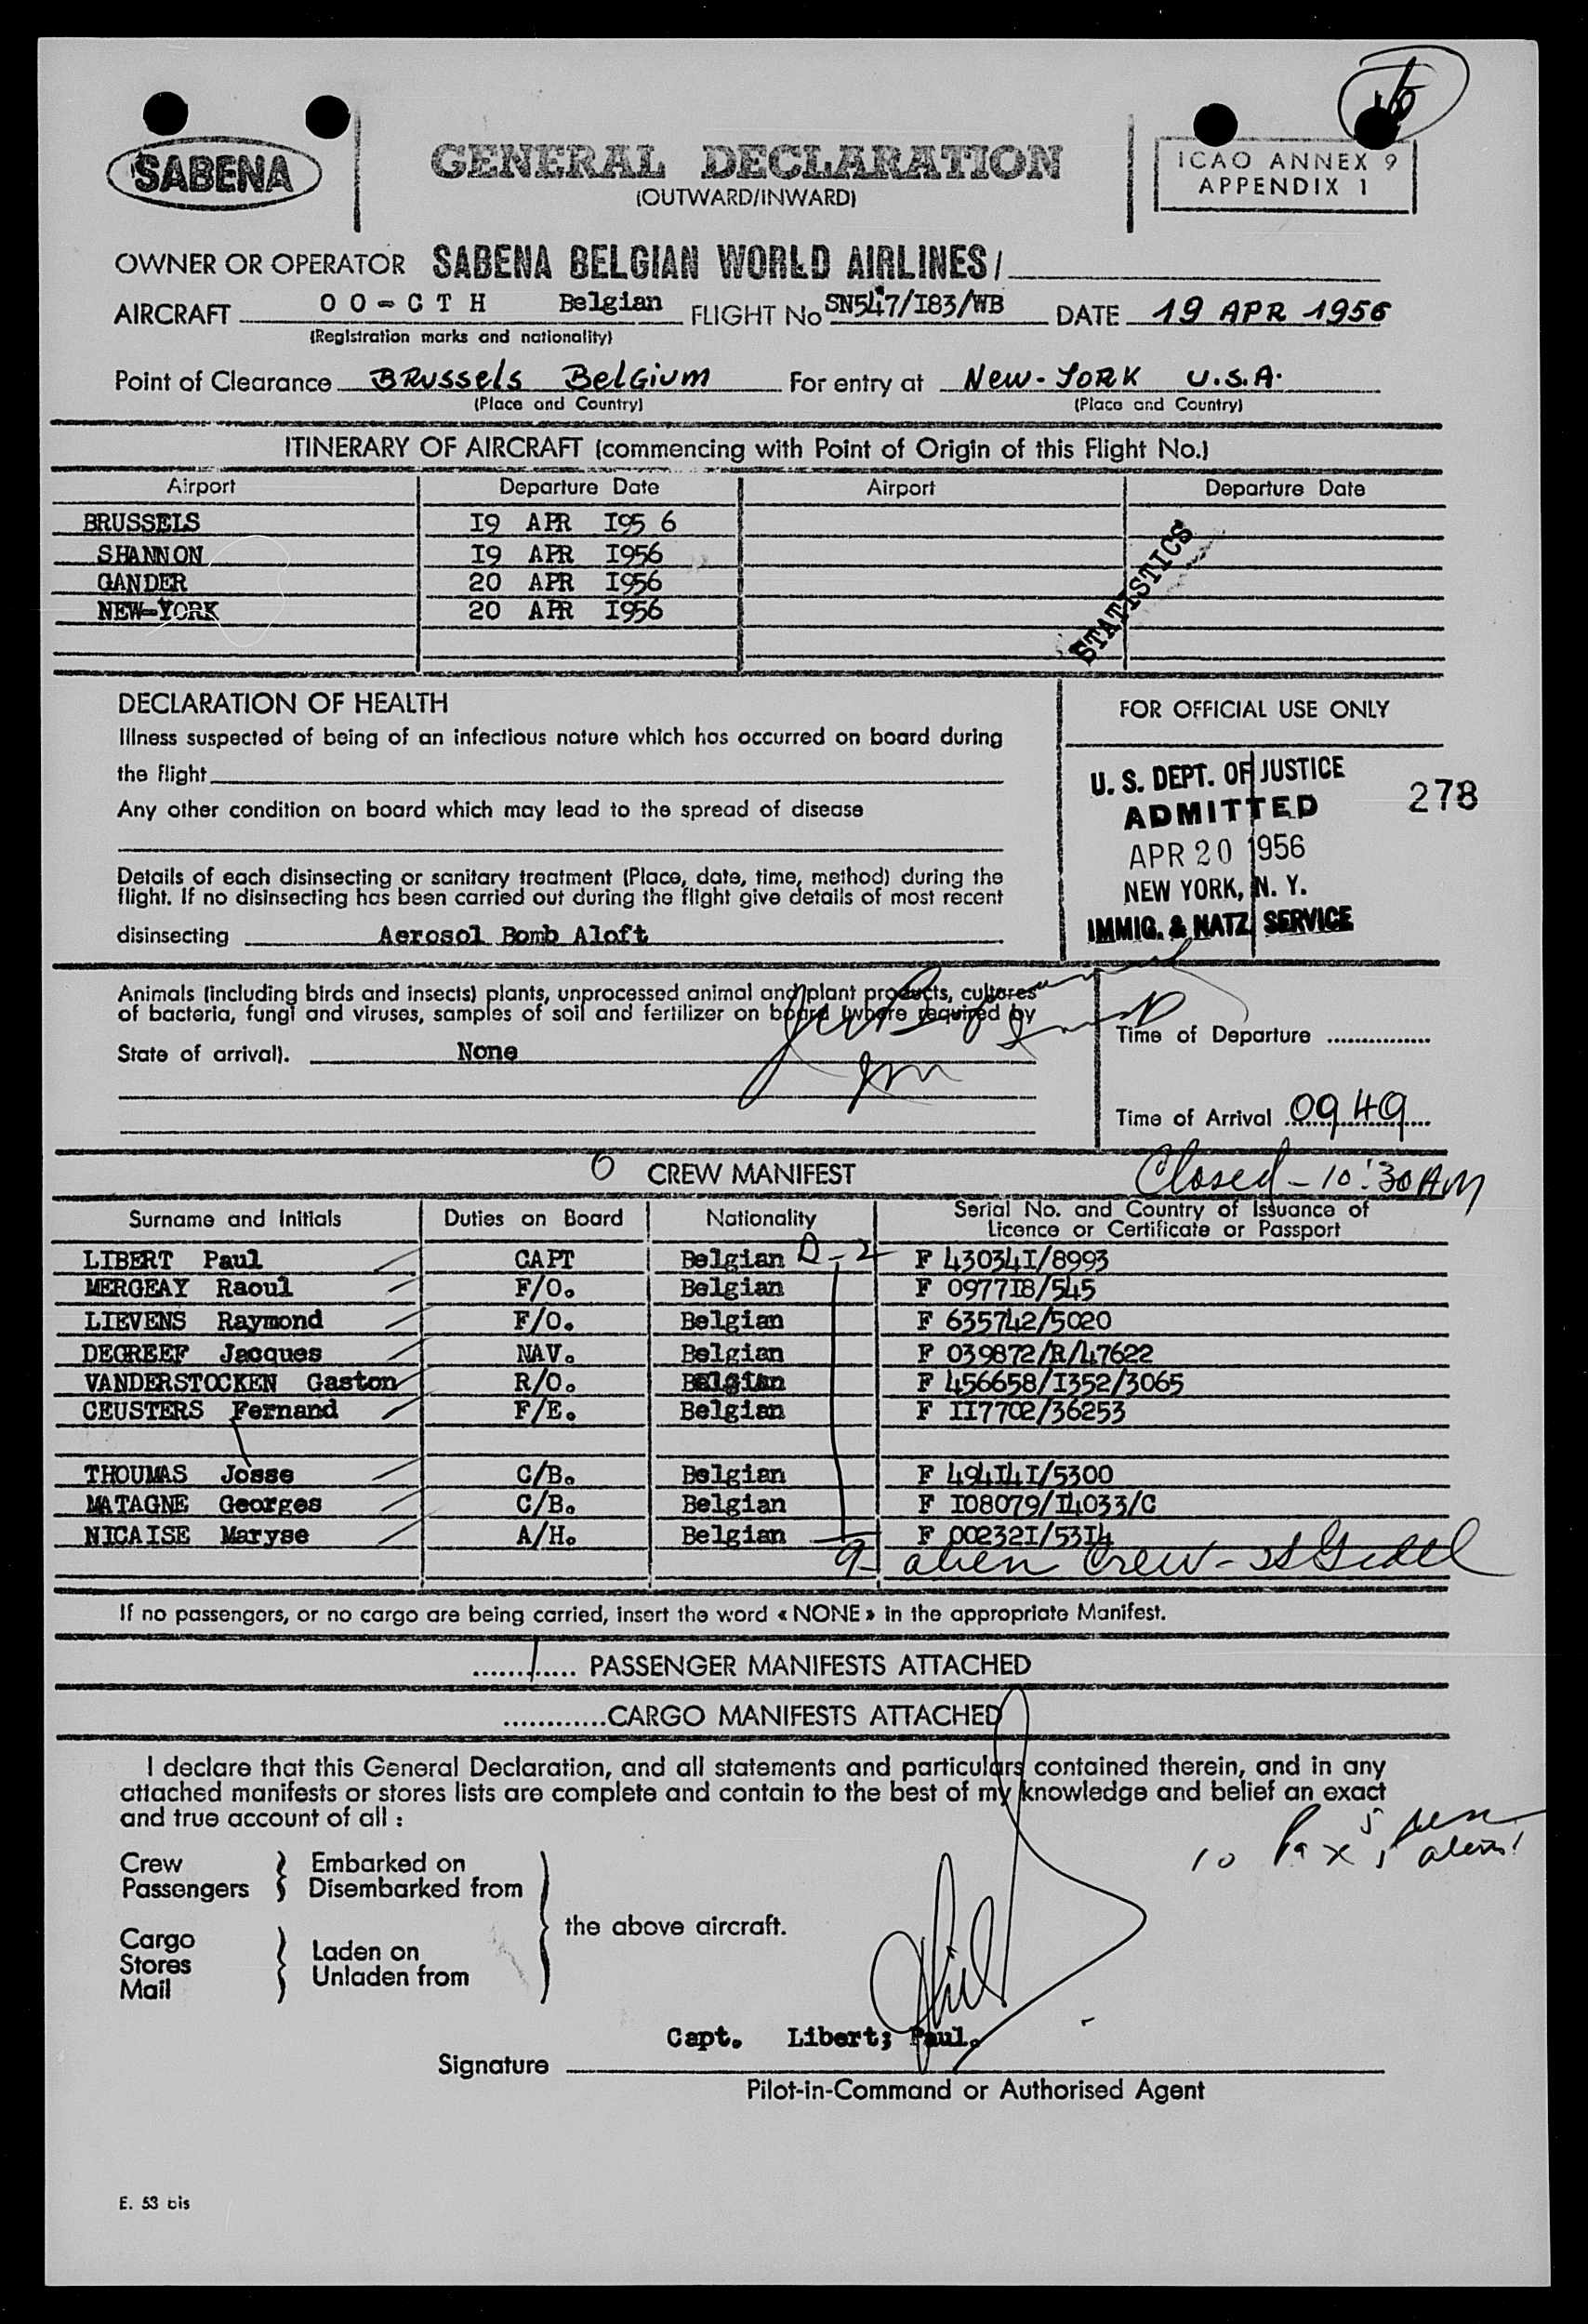 SABENA
GENERAL DECLARATION
(OUTWARD/INWARD)
ICAO ANNEX 9
APPENDIX 1
OWNER OR OPERATOR SABENA BELGIAN WORLD AIRLINES/
AIRCRAFT OO-CTH Belgian FLIGHT No SN547/I83/WB DATE 19 APR 1956
(Registration marks and nationality)
Point of Clearance BRussels BelGium For entry at New-YORK U.S.A.
(Place and Country) (Place and Country)
ITINERARY OF AIRCRAFT (commencing with Point of Origin of this Flight No.)
Airport Departure Date Airport Departure Date
BRUSSELS I9 APR I95 6
SHANNON I9 APR I956
GANDER 20 APR I956
NEW-YORK 20 APR I956
STATISTICS
DECLARATION OF HEALTH
Illness suspected of being of an infectious nature which has occurred on board during
the flight
Any other condition on board which may lead to the spread of disease
Details of each disinsecting or sanitary treatment (Place, date, time, method) during the
flight. If no disinsecting has been carried out during the flight give details of most recent
disinsecting Aerosol Bomb Aloft
FOR OFFICIAL USE ONLY
U. S. DEPT. OF JUSTICE
ADMITTED
APR 20 1956
NEW YORK, N. Y.
IMMIG. & NATZ SERVICE
278
Animals (including birds and insects) plants, unprocessed animal and plant products, cultures
of bacteria, fungi and viruses, samples of soil and fertilizer on board (where required by
State of arrival). None
Time of Departure
Time of Arrival 0949
Closed - 10:30 AM
CREW MANIFEST
Surname and Initials Duties on Board Nationality Serial No. and Country of Issuance of
Licence or Certificate or Passport
LIBERT Paul CAPT Belgian D-2 F 43034I/8993
MERGEAY Raoul F/O. Belgian F 0977I8/545
LIEVENS Raymond F/O. Belgian F 635742/5020
DEGREEF Jacques NAV. Belgian F 039872/R/47622
VANDERSTOCKEN Gaston R/O. Belgian F 456658/I352/3065
CEUSTERS Fernand F/E. Belgian F II7702/36253
THOUMAS Josse C/B. Belgian F 494I4I/5300
MATAGNE Georges C/B. Belgian F I08079/I4033/C
NICAISE Maryse A/H. Belgian F 00232I/53I4
9 alien Crew -
If no passengers, or no cargo are being carried, insert the word « NONE » in the appropriate Manifest.
1 PASSENGER MANIFESTS ATTACHED
CARGO MANIFESTS ATTACHED
I declare that this General Declaration, and all statements and particulars contained therein, and in any
attached manifests or stores lists are complete and contain to the best of my knowledge and belief an exact
and true account of all :
10 Pax
Crew
Passengers
Embarked on
Disembarked from
Cargo
Stores
Mail
Laden on
Unladen from
the above aircraft.
Capt. Libert; Paul.
Signature
Pilot-in-Command or Authorised Agent
E. 53 bis